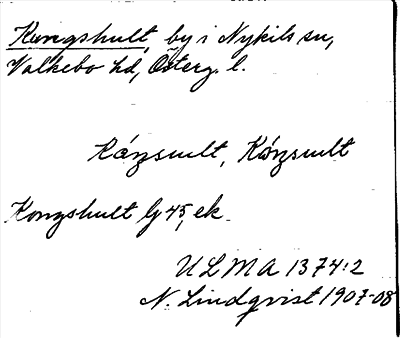 Kungshult, by i Nykils sn,
Valkebo hd, Österg. l.
Kåŋsult, Kåŋsult
Konzshult lg 45, ek.
ULMA 1374:2
N. Lindqvist 1907-08